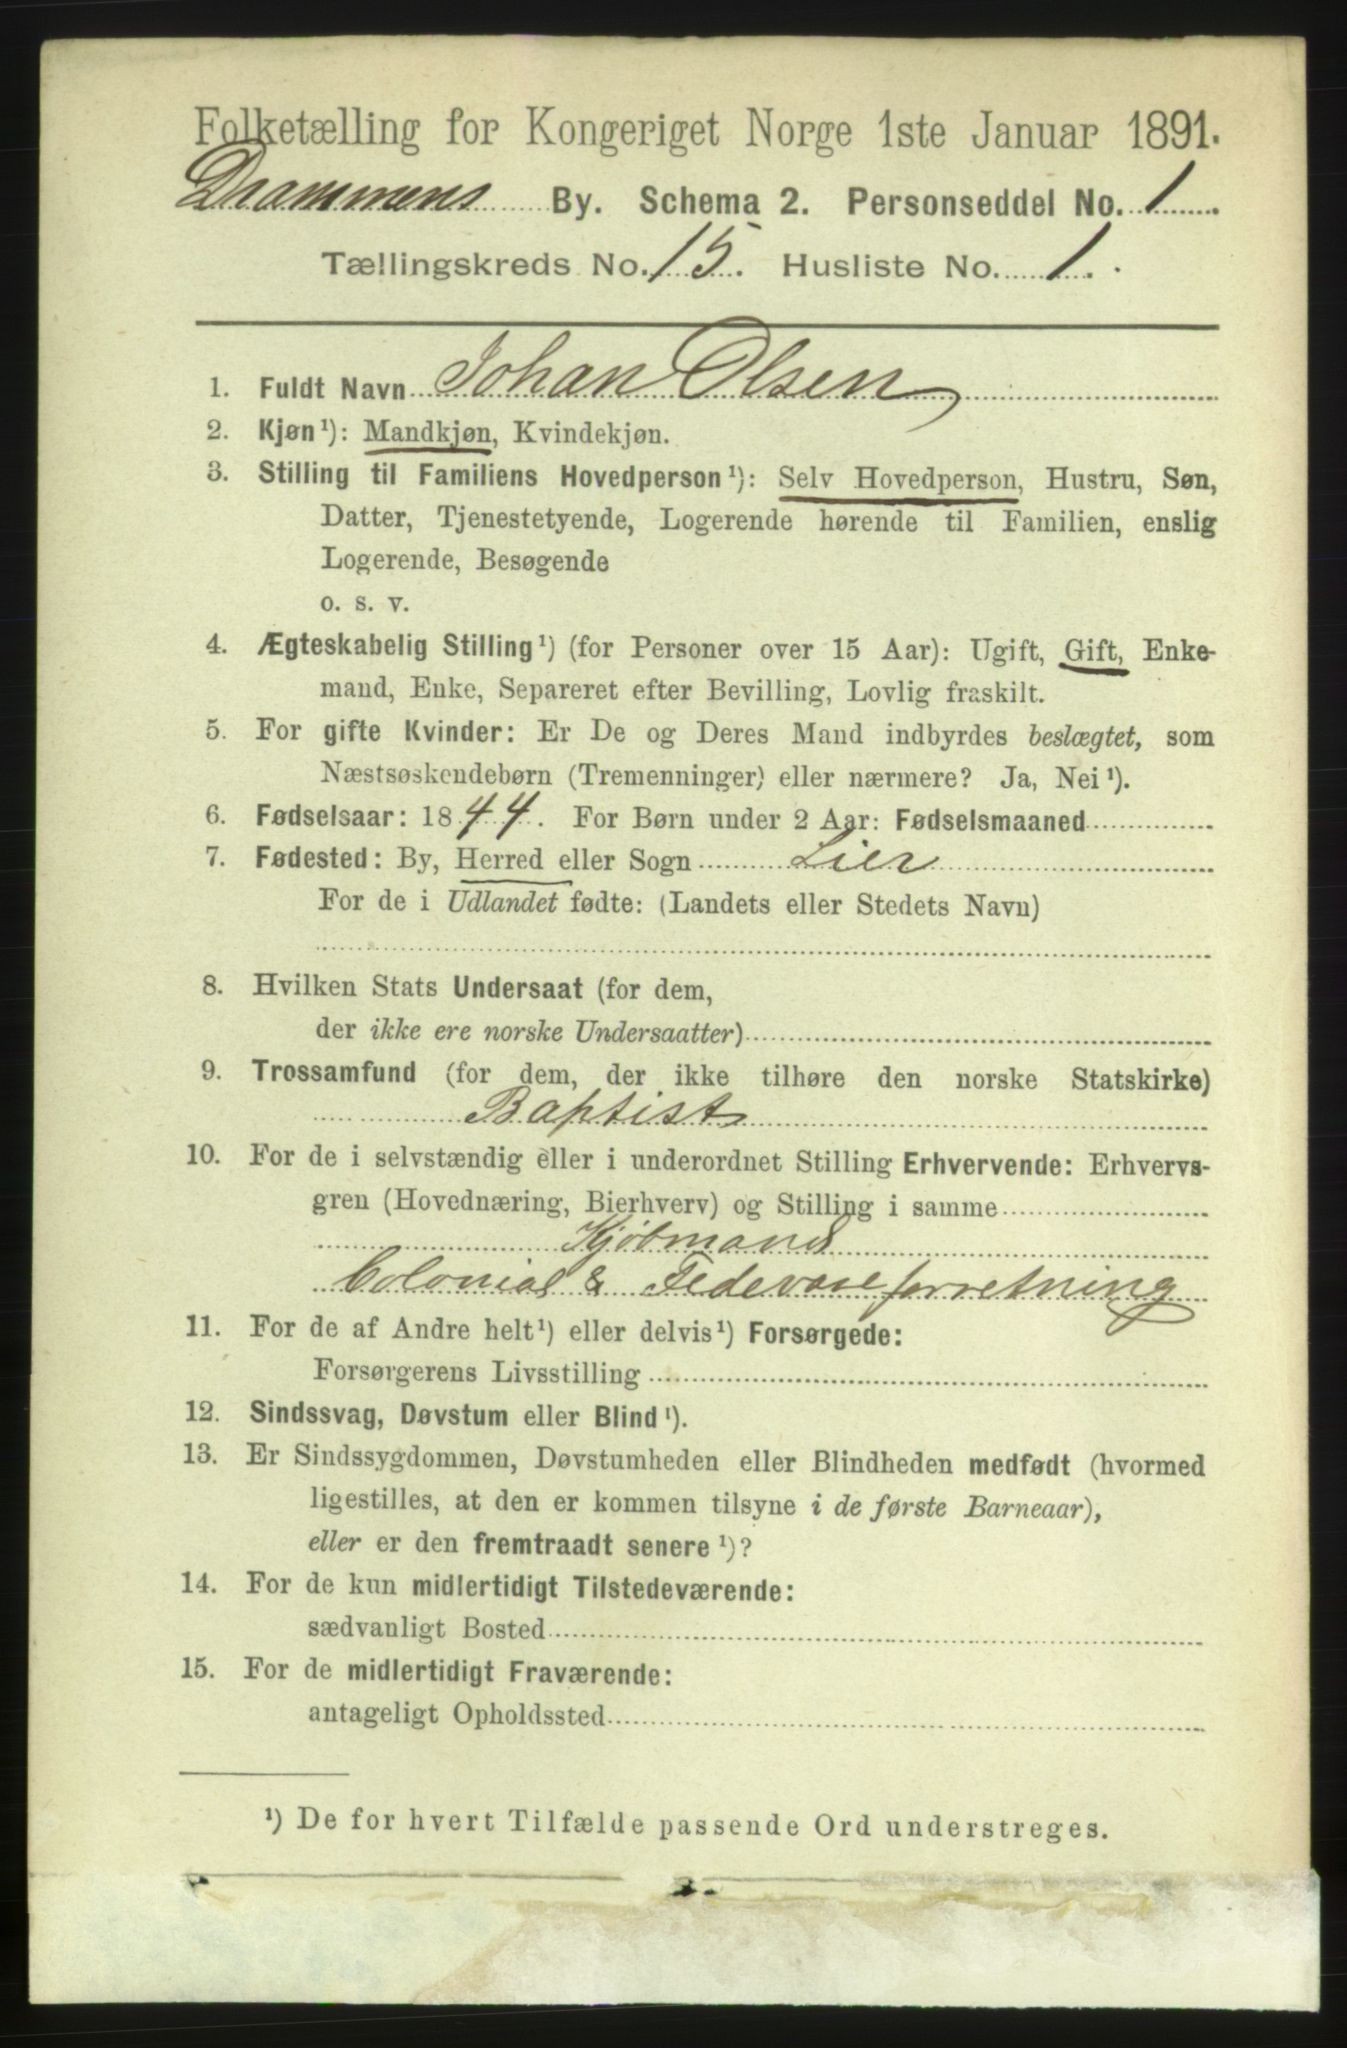 Folketælling for Kongeriget Norge 1ste Januar 1891.
Drammens By. Schema 2. Personseddel No. 1.
Tællingskreds No. 15. Husliste No. 1.
1. Fuldt Navn Johan Olsen
2. Kjøn¹): Mandkjøn, Kvindekjøn.
3. Stilling til Familiens Hovedperson¹): Selv Hovedperson, Hustru, Søn,
Datter, Tjenestetyende, Logerende hørende til Familien, enslig
Logerende, Besøgende
o. s. v.
4. Ægteskabelig Stilling¹) (for Personer over 15 Aar): Ugift, Gift, Enke-
mand, Enke, Separeret efter Bevilling, Lovlig fraskilt.
5. For gifte Kvinder: Er De og Deres Mand indbyrdes beslægtet, som
Næstsøskendebørn (Tremenninger) eller nærmere? Ja, Nei¹).
6. Fødselsaar: 1844. For Børn under 2 Aar: Fødselsmaaned
7. Fødested: By, Herred eller Sogn Lier
For de i Udlandet fødte: (Landets eller Stedets Navn)
8. Hvilken Stats Undersaat (for dem,
der ikke ere norske Undersaatter)
9. Trossamfund (for dem, der ikke tilhøre den norske Statskirke)
Baptist
10. For de i selvstændig eller i underordnet Stilling Erhvervende: Erhvervs-
gren (Hovednæring, Bierhverv) og Stilling i samme
Kjøbmand
Colonial & Fedevareforretning
11. For de af Andre helt¹) eller delvis¹) Forsørgede:
Forsørgerens Livsstilling
12. Sindssvag, Døvstum eller Blind¹).
13. Er Sindssygdommen, Døvstumheden eller Blindheden medfødt (hvormed
ligestilles, at den er kommen tilsyne i de første Barneaar),
eller er den fremtraadt senere¹)?
14. For de kun midlertidigt Tilstedeværende:
sædvanligt Bosted
15. For de midlertidigt Fraværende:
antageligt Opholdssted
¹) De for hvert Tilfælde passende Ord understreges.